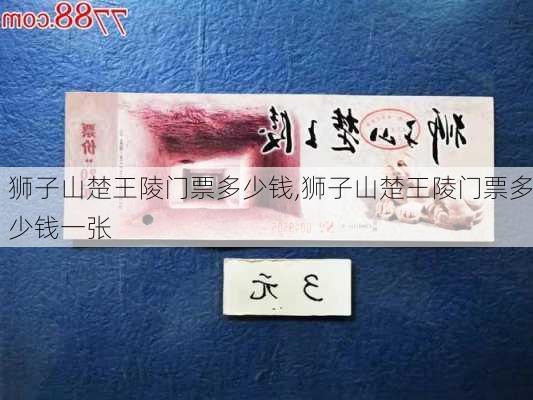 7788.com
狮子山楚王陵
票价:
狮子山楚王陵门票多少钱,狮子山楚王陵门票多
少钱一张
3元